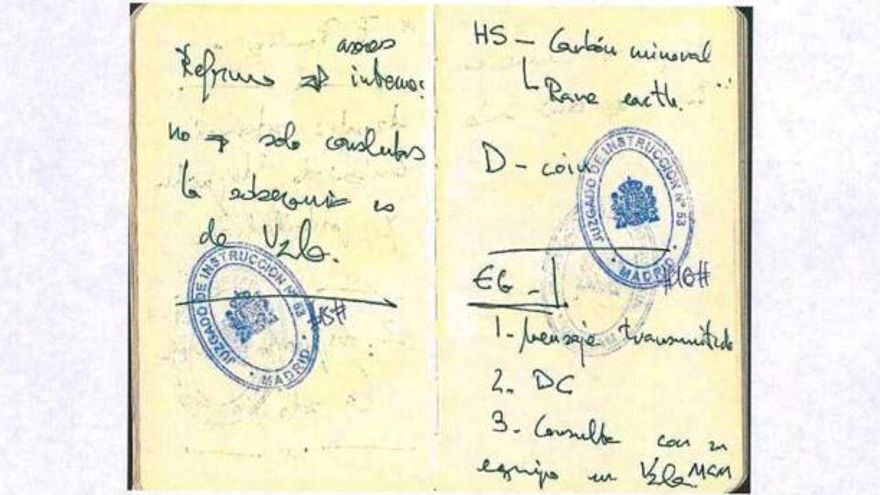 asores
Reforma → interna:
no → solo consultas
la soberanía es
de Vzla.
JUZGADO DE INSTRUCCION Nº 53
· MADRID ·
#15#
HS - Carbón mineral
Rare earth.
D - coin
JUZGADO DE INSTRUCCION Nº 53
· MADRID ·
#16#
EG -
1- mensaje transmitido
2. DC
3- Consulta con su
equipo en Vzla. MCM